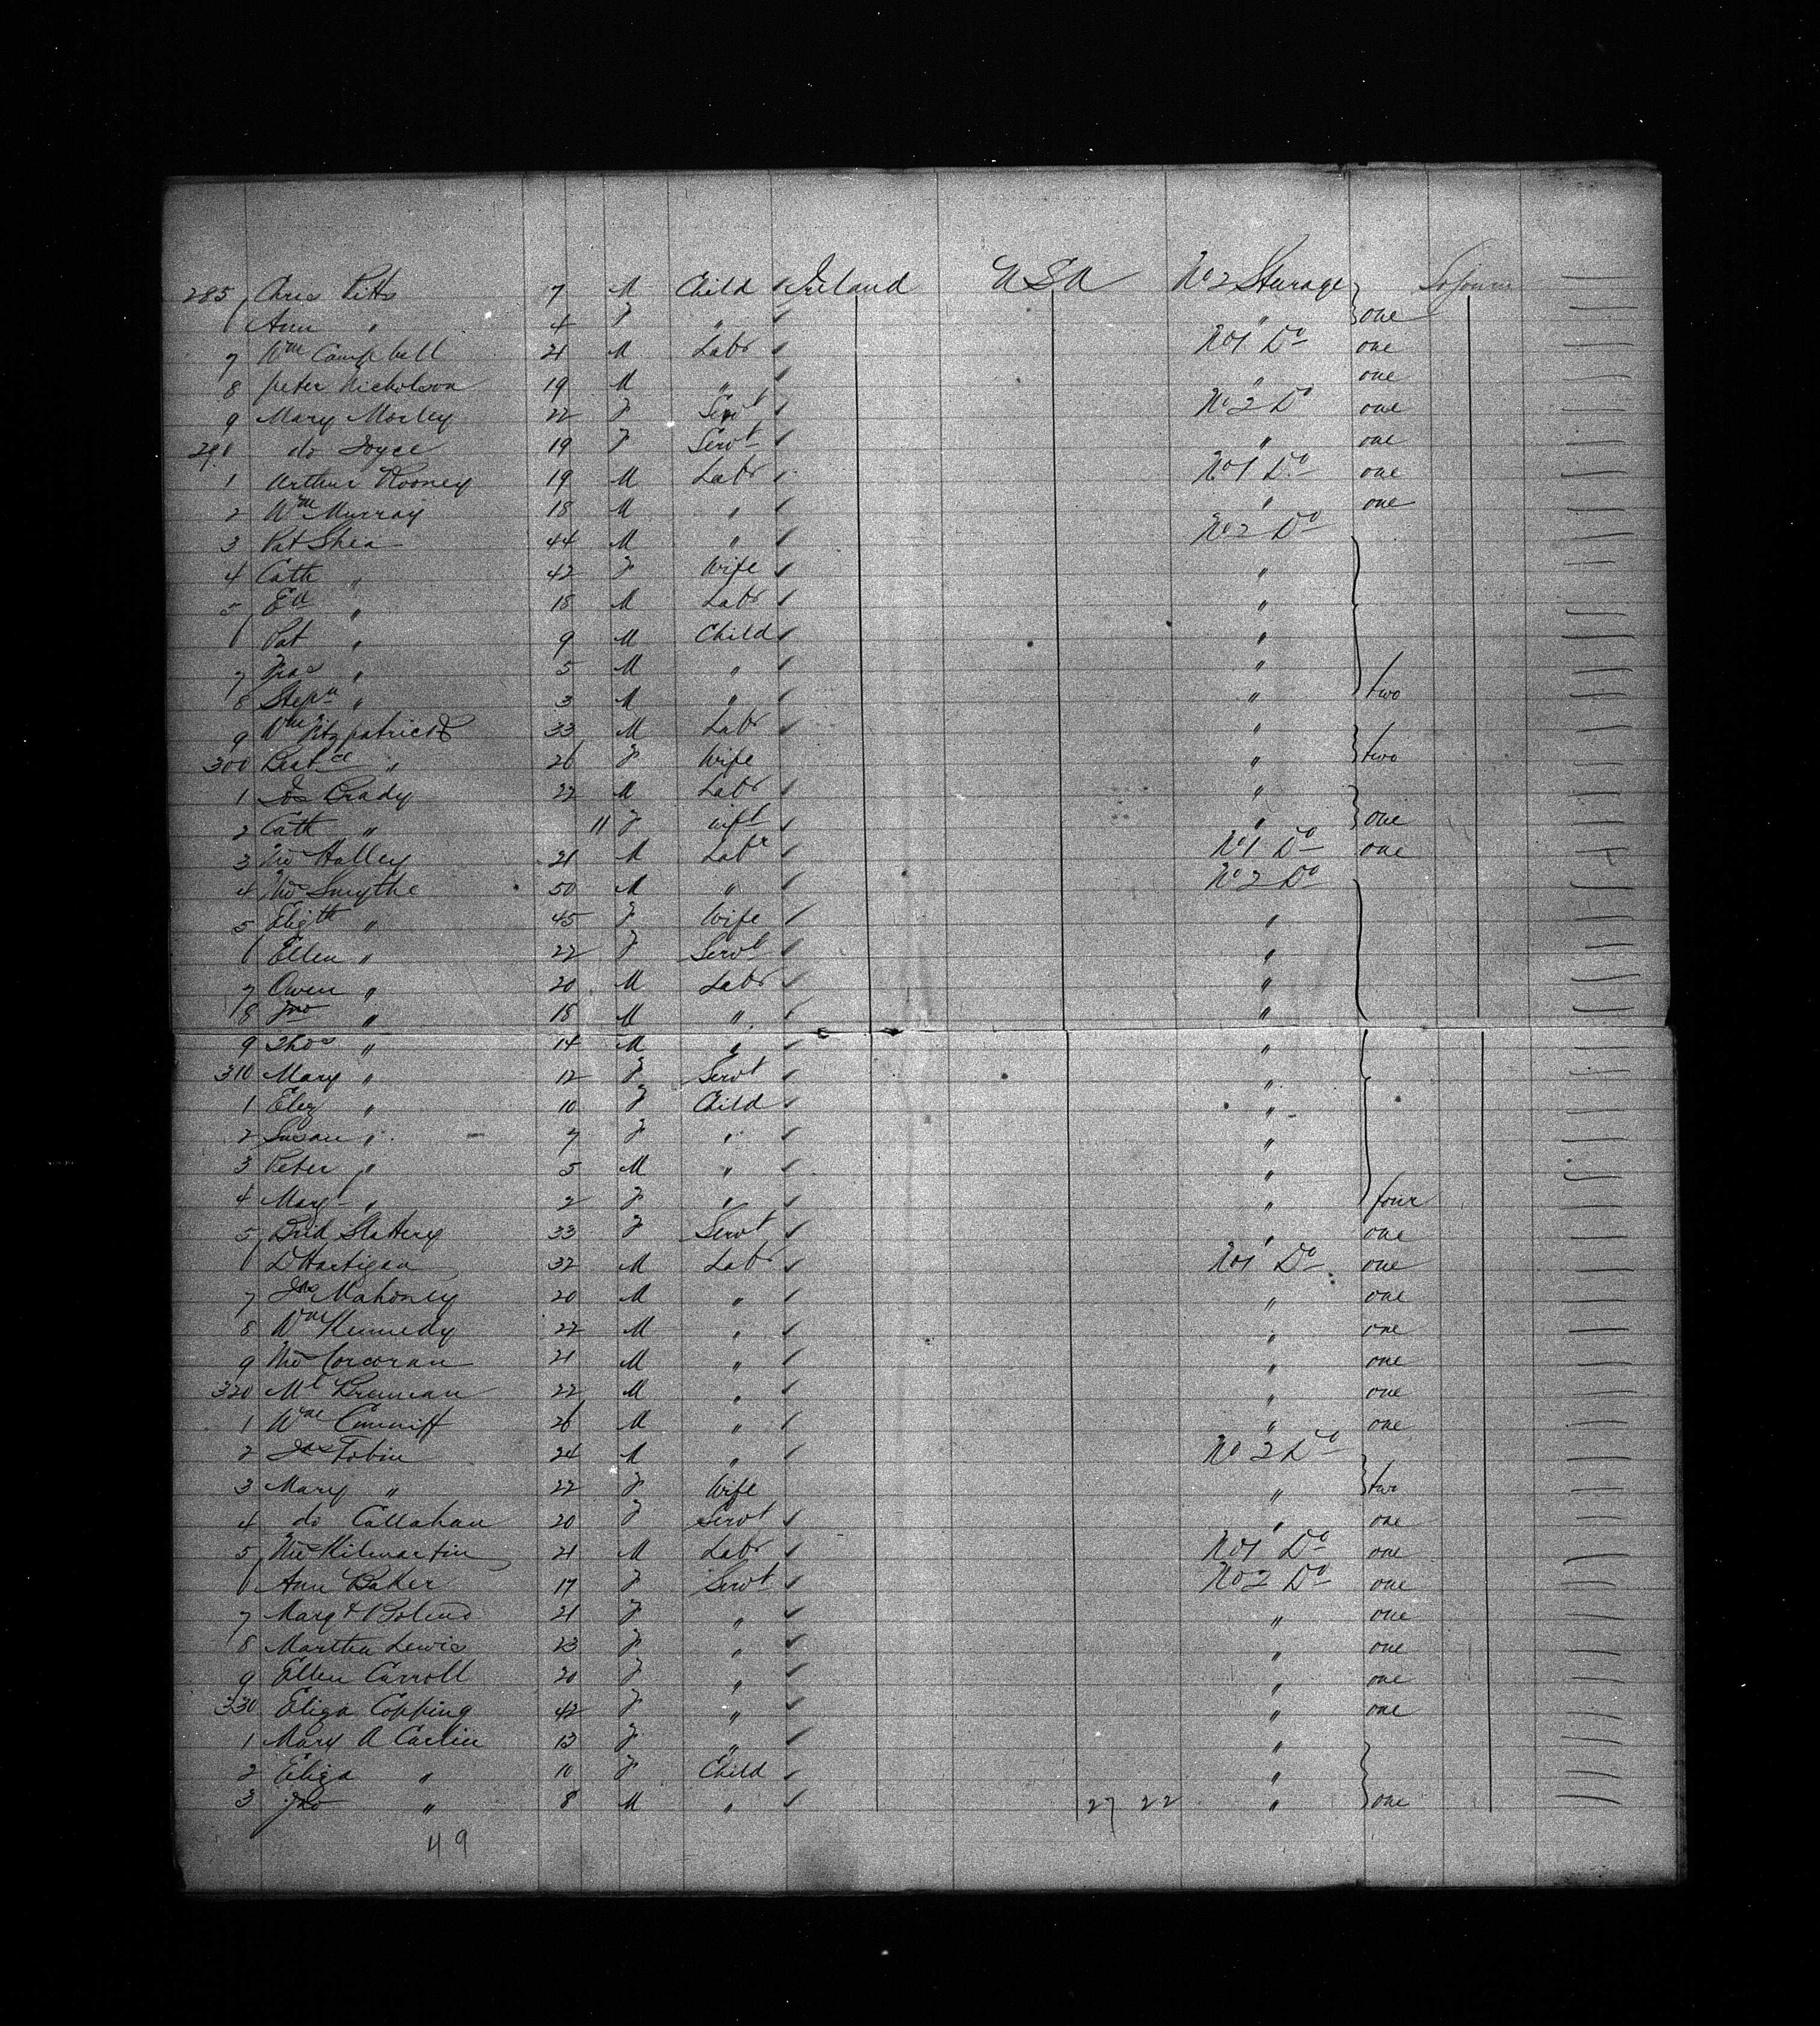 285 Chris Pitts 7 M Child Ireland USA No 2 Sterage Sojourn
6 Ann " 4 F " " one
7 Wm Campbell 21 M Labr No 1 Do one
8 peter Nicholson 19 M " " one
9 Mary Morley 22 F Servt No 2 Do one
290 do Joyce 19 F Servt " one
1 Arthur Rooney 19 M Labr No 1 Do one
2 Wm Murray 18 M " " one
3 Pat Shea 44 M " No 2 Do
4 Cath " 42 F Wife "
5 Ed " 18 M Labr "
6 Pat " 9 M Child "
7 " 5 M " "
8 Stepn " 3 M " " two
9 Wm Fitzpatrick 33 M Labr "
300 " 26 F Wife " two
1 Brady 22 M Labr "
2 Cath " 11 F Wife " one
3 Halley 21 M Labr No 1 Do one
4 Smythe 50 M " No 2 Do
5 Elizth " 45 F Wife "
6 Ellen " 22 F Servt "
7 Owen " 20 M Labr "
8 Jno " 18 M " "
9 Thos " 14 M " "
310 Mary " 12 F Servt "
1 Eliz " 10 F Child "
2 Susan " 7 F " "
3 Peter " 5 M " "
4 Mary " 2 F " " four
5 Brid Slattery 33 F Servt " one
6 D Hartigan 32 M Labr No 1 Do one
7 Mahoney 20 M " " one
8 Wm Kennedy 22 M " " one
9 Corcoran 21 M " " one
320 Ml Brennan 22 M " " one
1 Wm Cunniff 26 M " " one
2 Jas Tobin 24 M " No 2 Do
3 Mary " 22 F Wife " two
4 do Callahan 20 F Servt " one
5 Kilmartin 21 M Labr No 1 Do one
6 Ann Baker 17 F Servt No 2 Do one
7 Margt 21 F " " one
8 Martha Lewis 23 F " " one
9 Ellen Carroll 20 F " " one
330 Eliza Copping 42 F " " one
1 Mary A Carlin 13 F " "
2 Eliza " 10 F Child "
3 Jno " 8 M " 27 22 " one
49